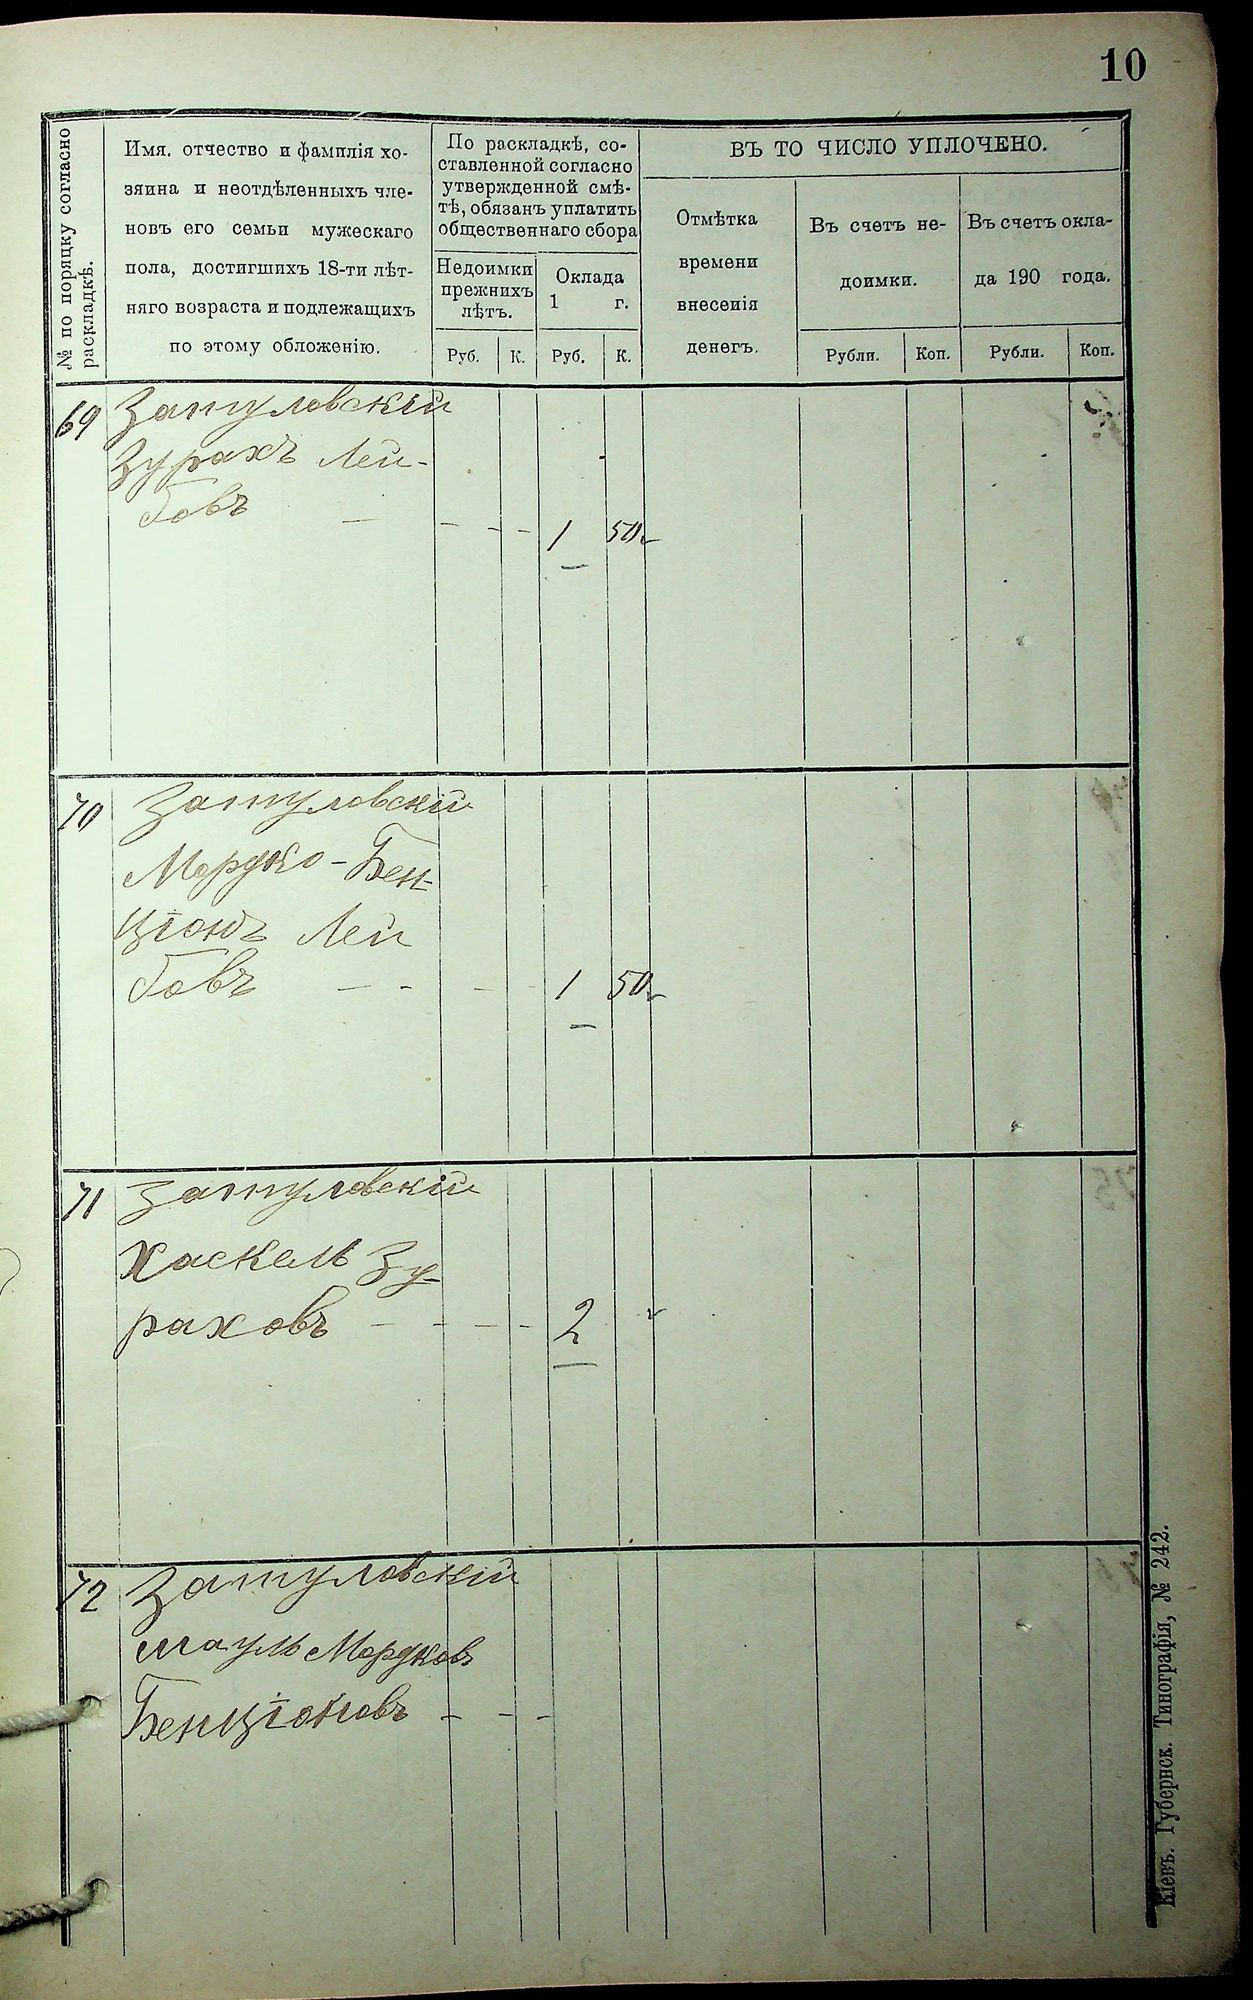 10
№ по порядку согласно
раскладкѣ.
Имя. отчество и фамилія хо-
зяина и неотдѣленныхъ чле-
новъ его семьи мужескаго
пола, достигшихъ 18-ти лѣт-
няго возраста и подлежащихъ
по этому обложенію.
По раскладкѣ, со-
ставленной согласно
утвержденной смѣ-
тѣ, обязанъ уплатить
общественнаго сбора
Недоимки
прежнихъ
лѣтъ.
Оклада
1 г.
Руб. К. Руб. К.
ВЪ ТО ЧИСЛО УПЛОЧЕНО.
Отмѣтка
времени
внесенія
денегъ.
Въ счетъ не-
доимки.
Въ счетъ окла-
да 190 года.
Рубли. Коп. Рубли. Коп.
69 Затуловскій
Зурахъ Лей-
бовъ — - - - 1 50
70 Затуловскій
Мордко-Бен-
ціонъ Лей
бовъ — - - - 1 50
71 Затуловскій
Хаскель Зу-
раховъ - - - - 2
72 Затуловскій
Шауль Мордков
Бенціоновъ - - -
Кіевъ. Губернск. Типографія, № 242.